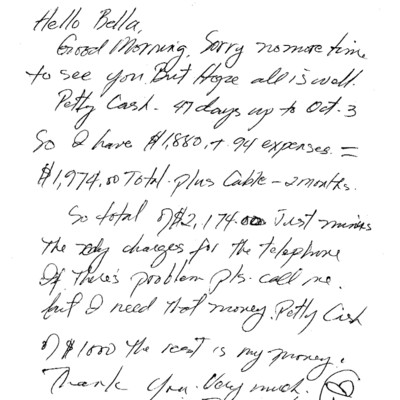 Hello Bella,
Good Morning. Sorry no more time
to see you. But Hope all is well.
Petty Cash - 47 days up to Oct. 3
So I have $1,880, + 94 expenses =
$1,974.00 Total - plus Cable - 2 months.
So total of $2,174.00 Just minus
the charges for the telephone
If there's problem pls. call me.
but I need that money. Petty Cash
of $1000 the rest is my money.
Thank you. Very much.